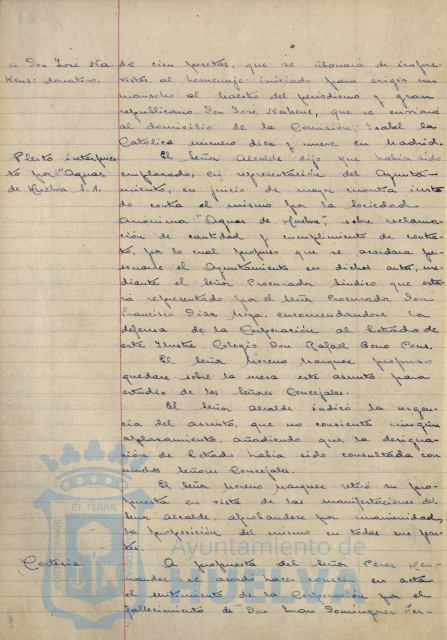 a Don José Na-
kens: donativo.
de cien pesetas, que se abonará de impre-
vistos, al homenaje iniciado para erigir un
mausoleo al maestro del periodismo y gran
republicano Don José Nakens, que se enviará
al domicilio de la Comisión, Isabel la
Católica número diez y nueve en Madrid.
Pleito interpues-
to por "Aguas
de Huelva S.A.
El Señor Alcalde dijo que había sido
emplazado, en representación del Ayunta-
miento, en juicio de mayor cuantía insta-
do contra el mismo por la Sociedad
Anónima "Aguas de Huelva", sobre reclama-
ción de cantidad y cumplimiento de contra-
to, por lo cual propuso que se acordara per-
sonarse el Ayuntamiento en dichos autos, me-
diante el Señor Procurador Síndico que esta-
rá representado por el Señor Procurador Don
Francisco Díaz encomendándose la
defensa de la Corporación al Letrado de
este Ilustre Colegio Don Rafael Bono
El Señor Moreno Marquez propuso
quedase sobre la mesa este asunto para
estudio de los Señores Concejales.
El Señor Alcalde indicó la urgen-
cia del asunto, que no consiente ningún
aplazamiento, añadiendo que la designa-
ción de Letrado había sido consultada con
muchos Señores Concejales.
El Señor Moreno Marquez retiró su pro-
puesta en vista de las manifestaciones del
Señor Alcalde, aprobándose por unanimidad
la proposición del mismo en todas sus par-
tes.
Cortesía.
A propuesta del Señor Perez Her-
nandez se acordó hacer constar en acta
el sentimiento de la Corporación por el
fallecimiento de Don Juan Dominguez Fer-
ET TERRAE
Ayuntamiento de
HUELVA